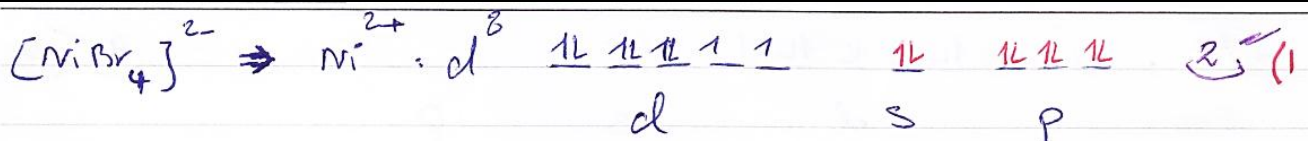 [NiBr₄]²⁻ ⇒ Ni²⁺ : d⁸ 1L 1L 1L 1 1 1L 1L 1L 1L 2 (1
d s p